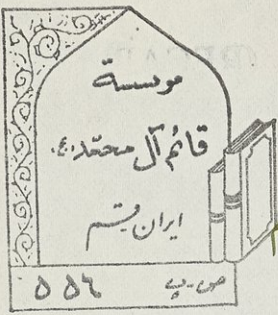 موسسة
قائم آل محمد ع.
ایران قم
ص-پ ۵۵۶